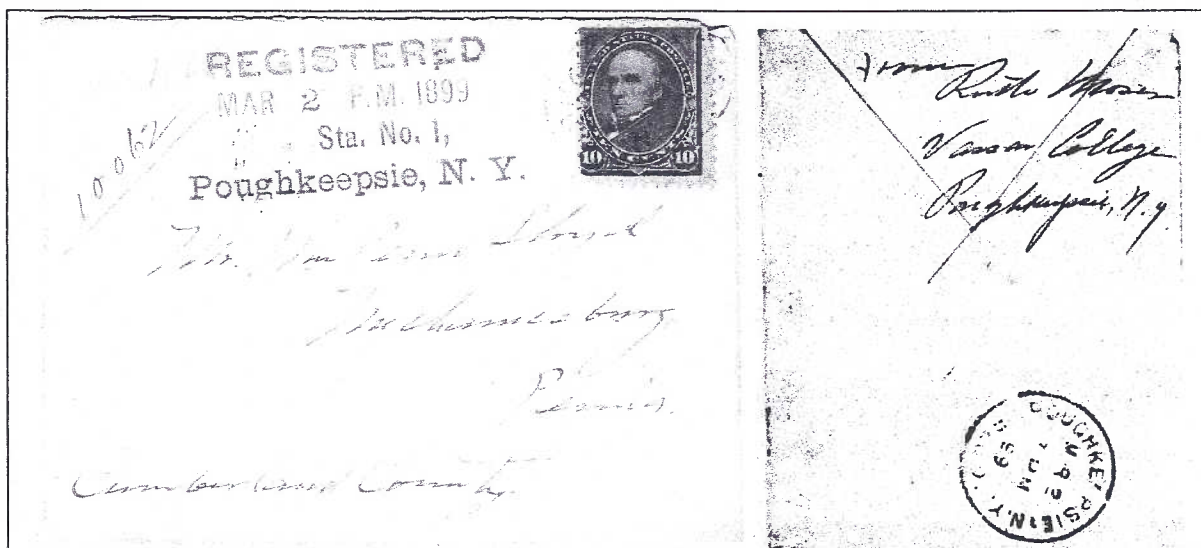 REGISTERED
MAR 2 P.M. 1899
Sta. No. 1,
Poughkeepsie, N. Y.
10062
10 10
Mr.
Mechanicsburg
Penna.
Cumberland County
from
Ruth Moses
Vassar College
Poughkeepsie, N.Y.
POUGHKEEPSIE N.Y.
99